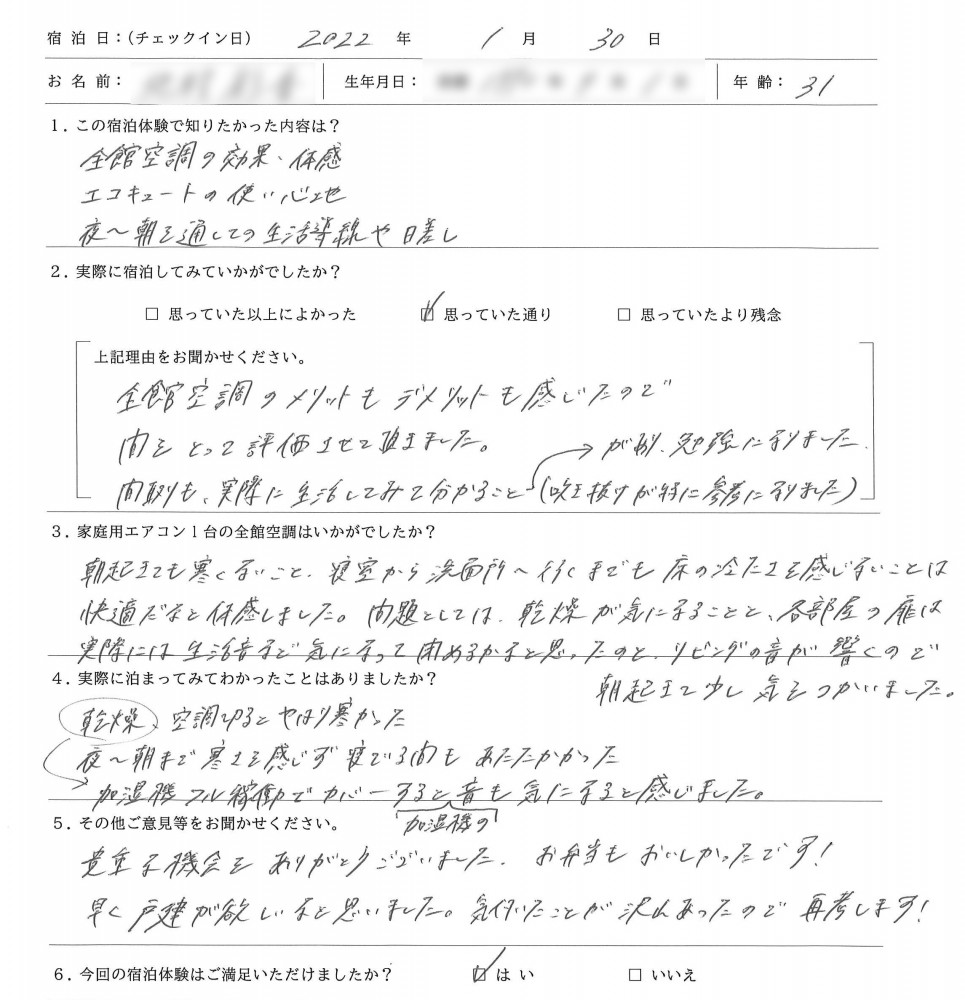 宿泊日：(チェックイン日) 2022 年 1 月 30 日
お名前： 生年月日： 年齢： 31
1. この宿泊体験で知りたかった内容は？
全館空調の効果、体感
エコキュートの使い心地
夜〜朝を通しての生活導線や日差し
2. 実際に宿泊してみていかがでしたか？
□ 思っていた以上によかった ☑ 思っていた通り □ 思っていたより残念
上記理由をお聞かせください。
全館空調のメリットもデメリットも感じたので
間をとって評価させて頂きました。
→ があり、勉強になりました。
間取りも、実際に生活してみて分かること (吹き抜けが特に参考になりました)
3. 家庭用エアコン1台の全館空調はいかがでしたか？
朝起きても寒くないこと、寝室から洗面所へ行くまでも床の冷たさを感じないことは
快適だなと体感しました。問題としては、乾燥が気になることと、各部屋の扉は
実際には生活音などで気になって閉めるかなと思ったのと、リビングの音が響くので
朝起きて少し気をつかいました。
4. 実際に泊まってみてわかったことはありましたか？
乾燥、空調切るとやはり寒かった
夜〜朝まで寒さを感じず寝てる間もあたたかかった
→ 加湿機フル稼働でカバーすると音も気になると感じました。
5. その他ご意見等をお聞かせください。 加湿機の
貴重な機会をありがとうございました。お弁当もおいしかったです！
早く戸建が欲しいなと思いました。気付いたことが沢山あったので再考します！
6. 今回の宿泊体験はご満足いただけましたか？ ☑ はい □ いいえ